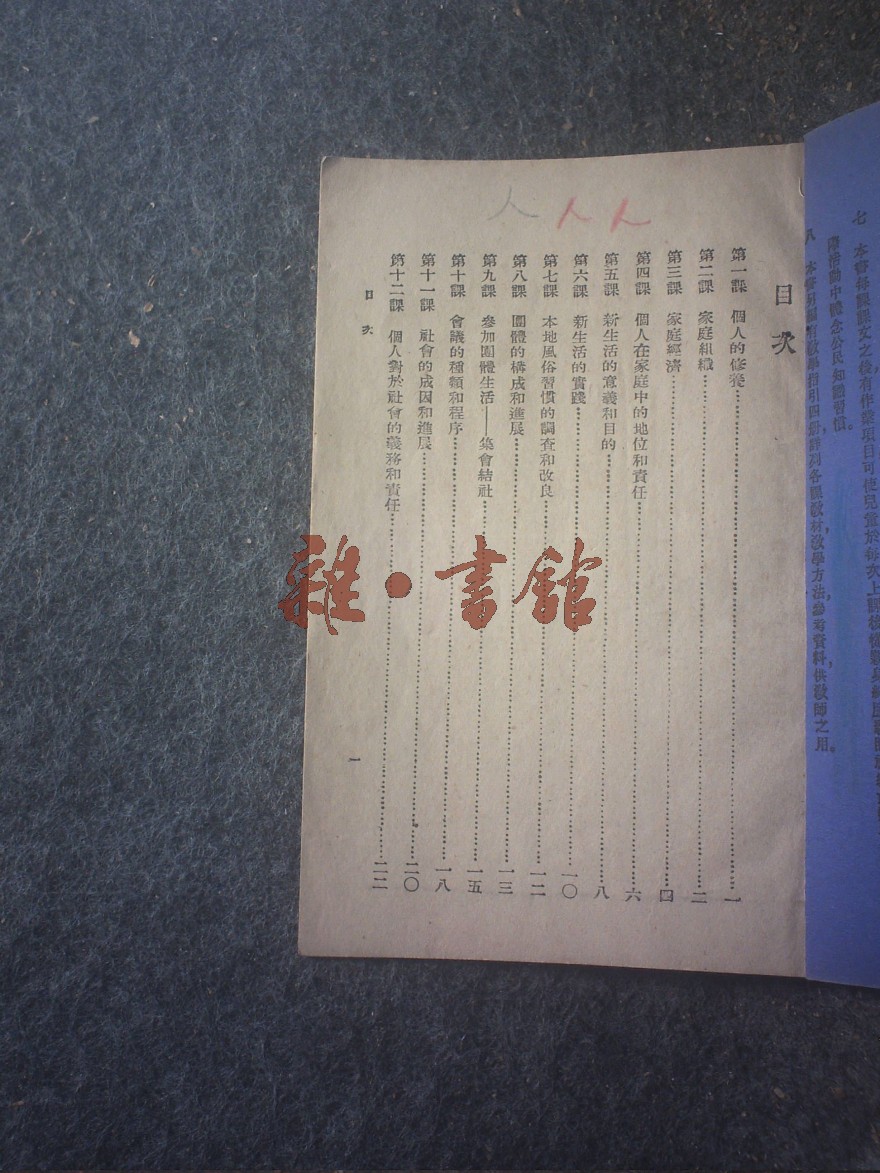 七　本書每課課文之後有作業項目可使兒童於每次上課
活動中體念公民知識習慣。
教學指引四冊詳列各課教材，教學方法，參考資料，供教師之用。
人人人
目次
第一課　個人的修養……一
第二課　家庭組織……二
第三課　家庭經濟……四
第四課　個人在家庭中的地位和責任……六
第五課　新生活的意義和目的……八
第六課　新生活的實踐……一〇
第七課　本地風俗習慣的調查和改良……一二
第八課　團體的構成和進展……一三
第九課　參加團體生活——集會結社……一五
第十課　會議的種類和程序……一八
第十一課　社會的成因和進展……二〇
第十二課　個人對於社會的義務和責任……二二
目次
一
雜·書館